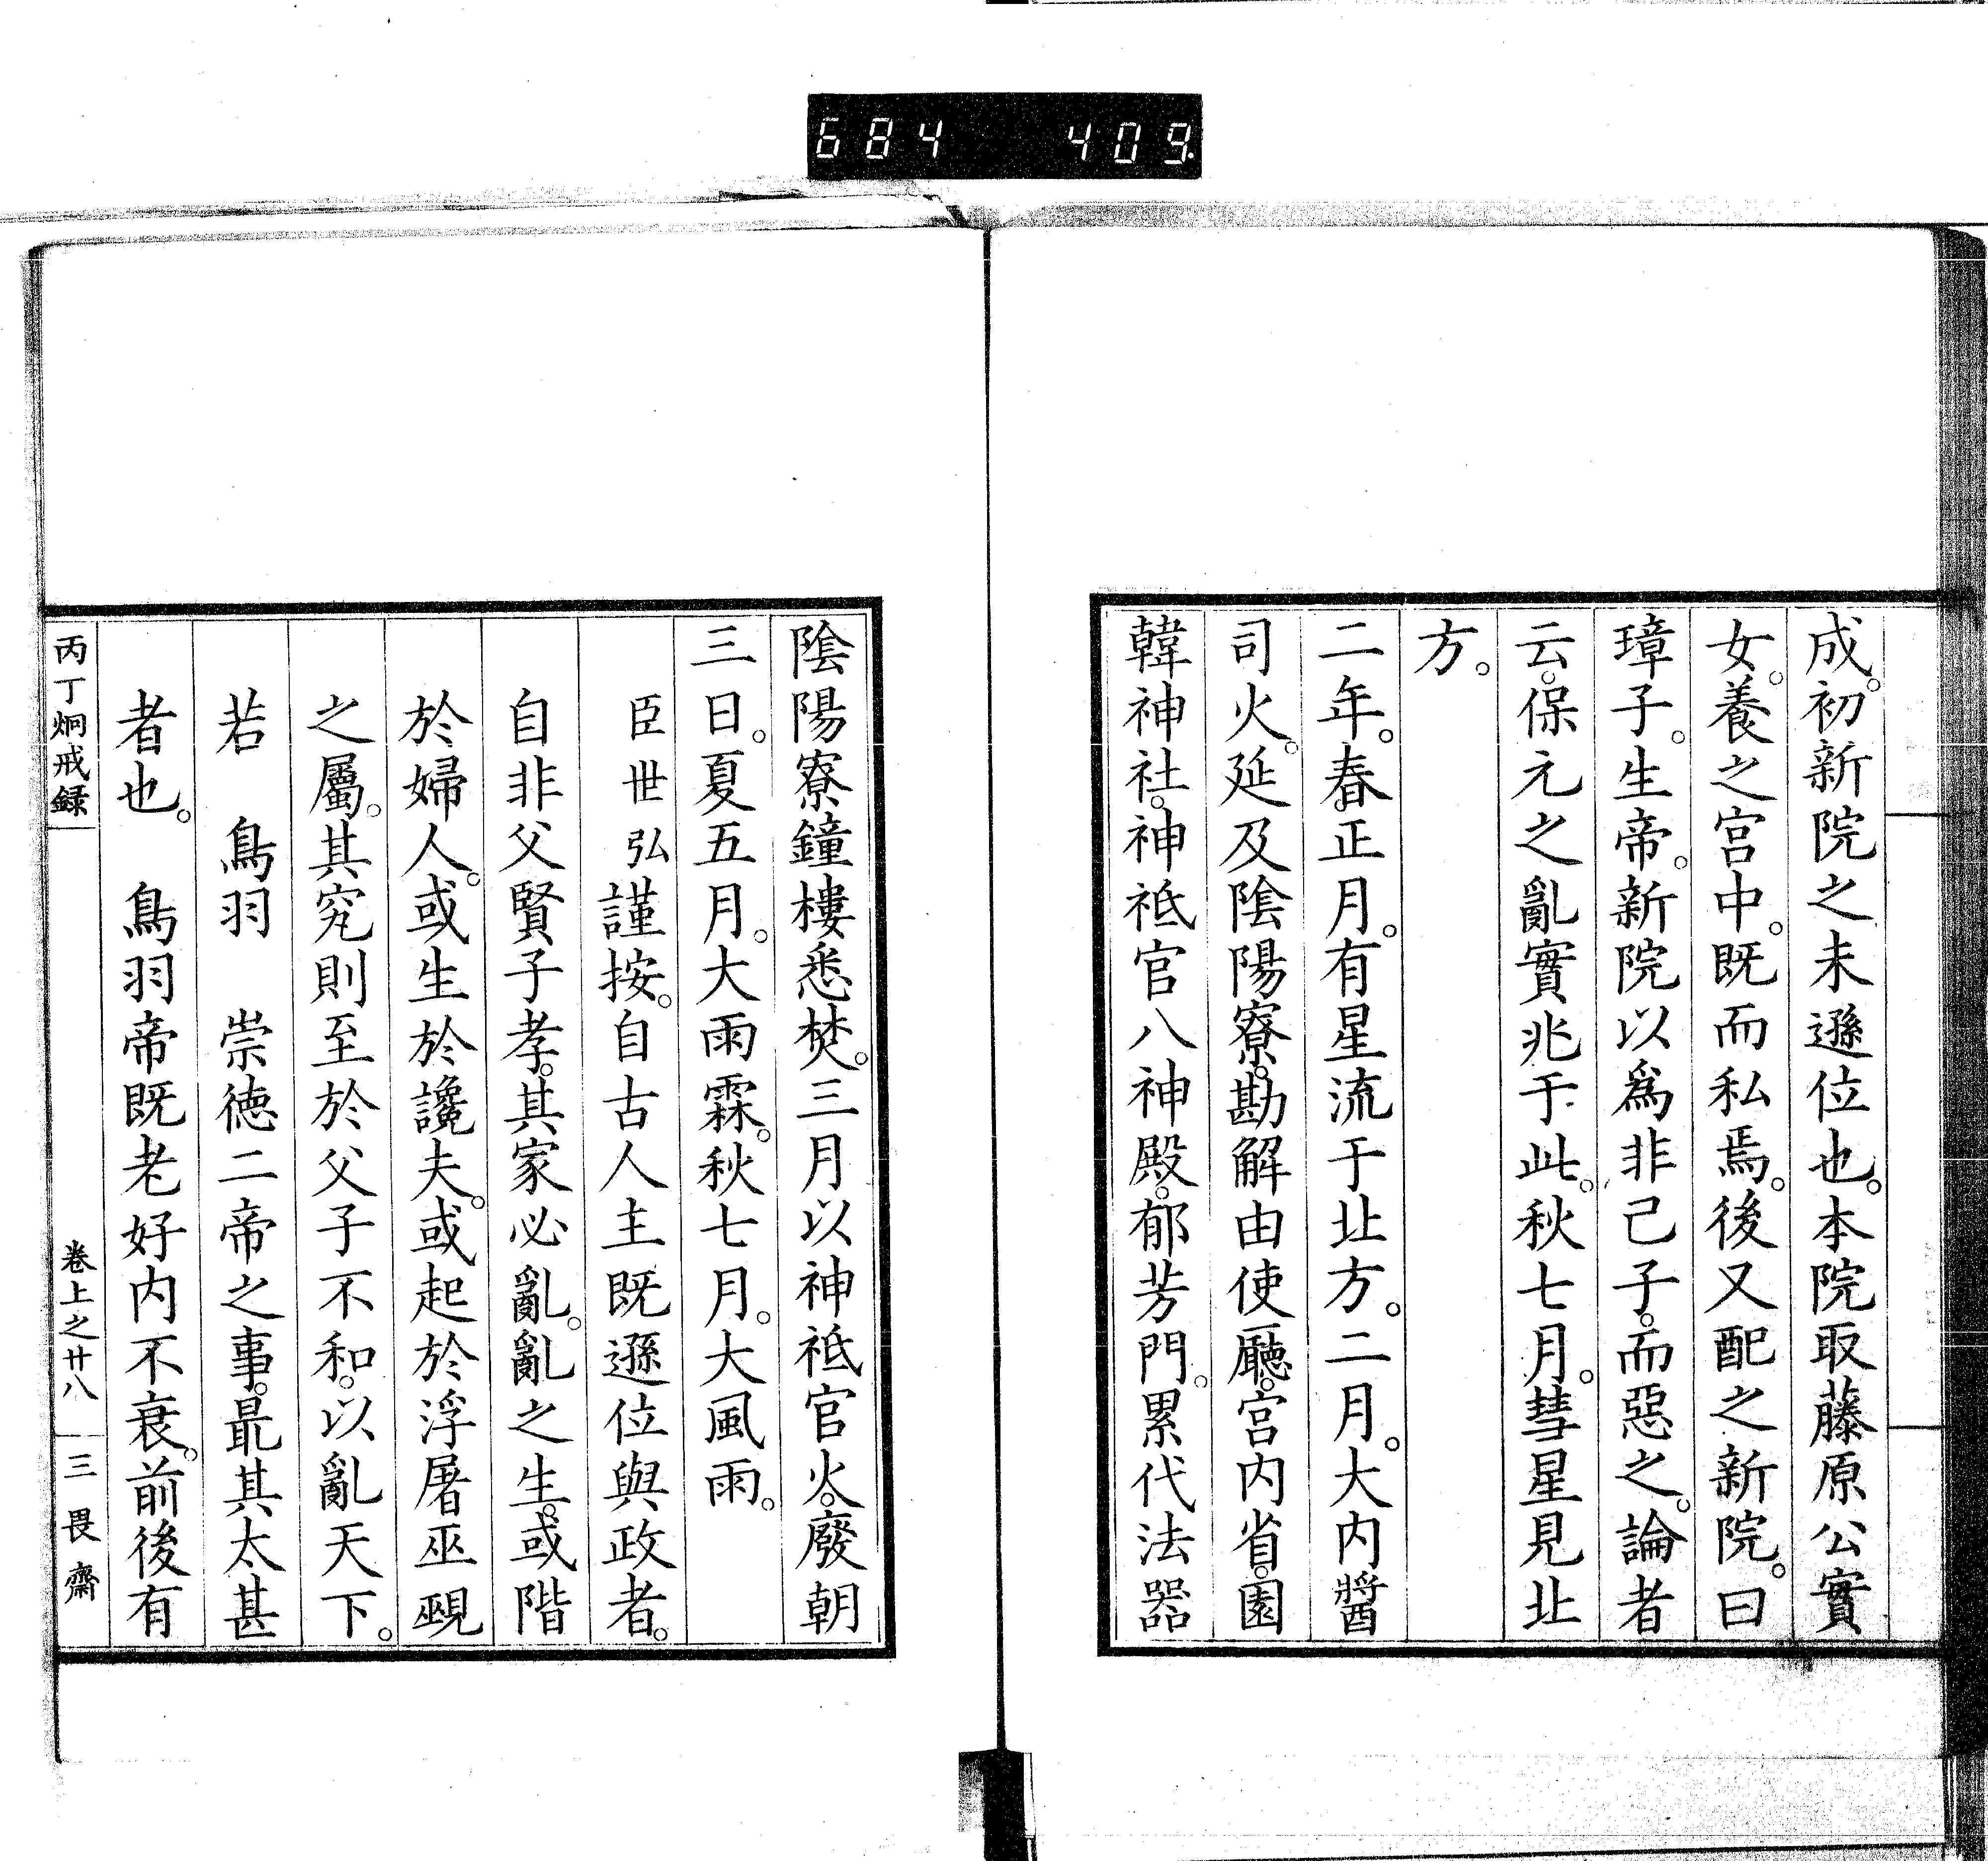 684 409.
成。初新院之未遜位也。本院取藤原公實
女。養之宮中。既而私焉。後又配之新院。曰
璋子。生帝。新院以爲非己子。而惡之。論者
云。保元之亂實兆于此。秋七月。彗星見北
方。
二年。春正月。有星流于北方。二月。大内醬
司火。延及陰陽寮。勘解由使廳。宮内省。園
韓神社。神祇官八神殿。郁芳門。累代法器
陰陽寮鐘樓悉焚。三月以神祇官火。廢朝
三日。夏五月。大雨霖。秋七月。大風雨。
臣世弘謹按。自古人主既遜位與政者。
自非父賢子孝。其家必亂。亂之生。或階
於婦人。或生於讒夫。或起於浮屠巫覡
之屬。其究則至於父子不和。以亂天下。
若 鳥羽 崇徳二帝之事。最其太甚
者也。 鳥羽帝既老好内不衰。前後有
丙丁烱戒録 卷上之廿八 三畏齋